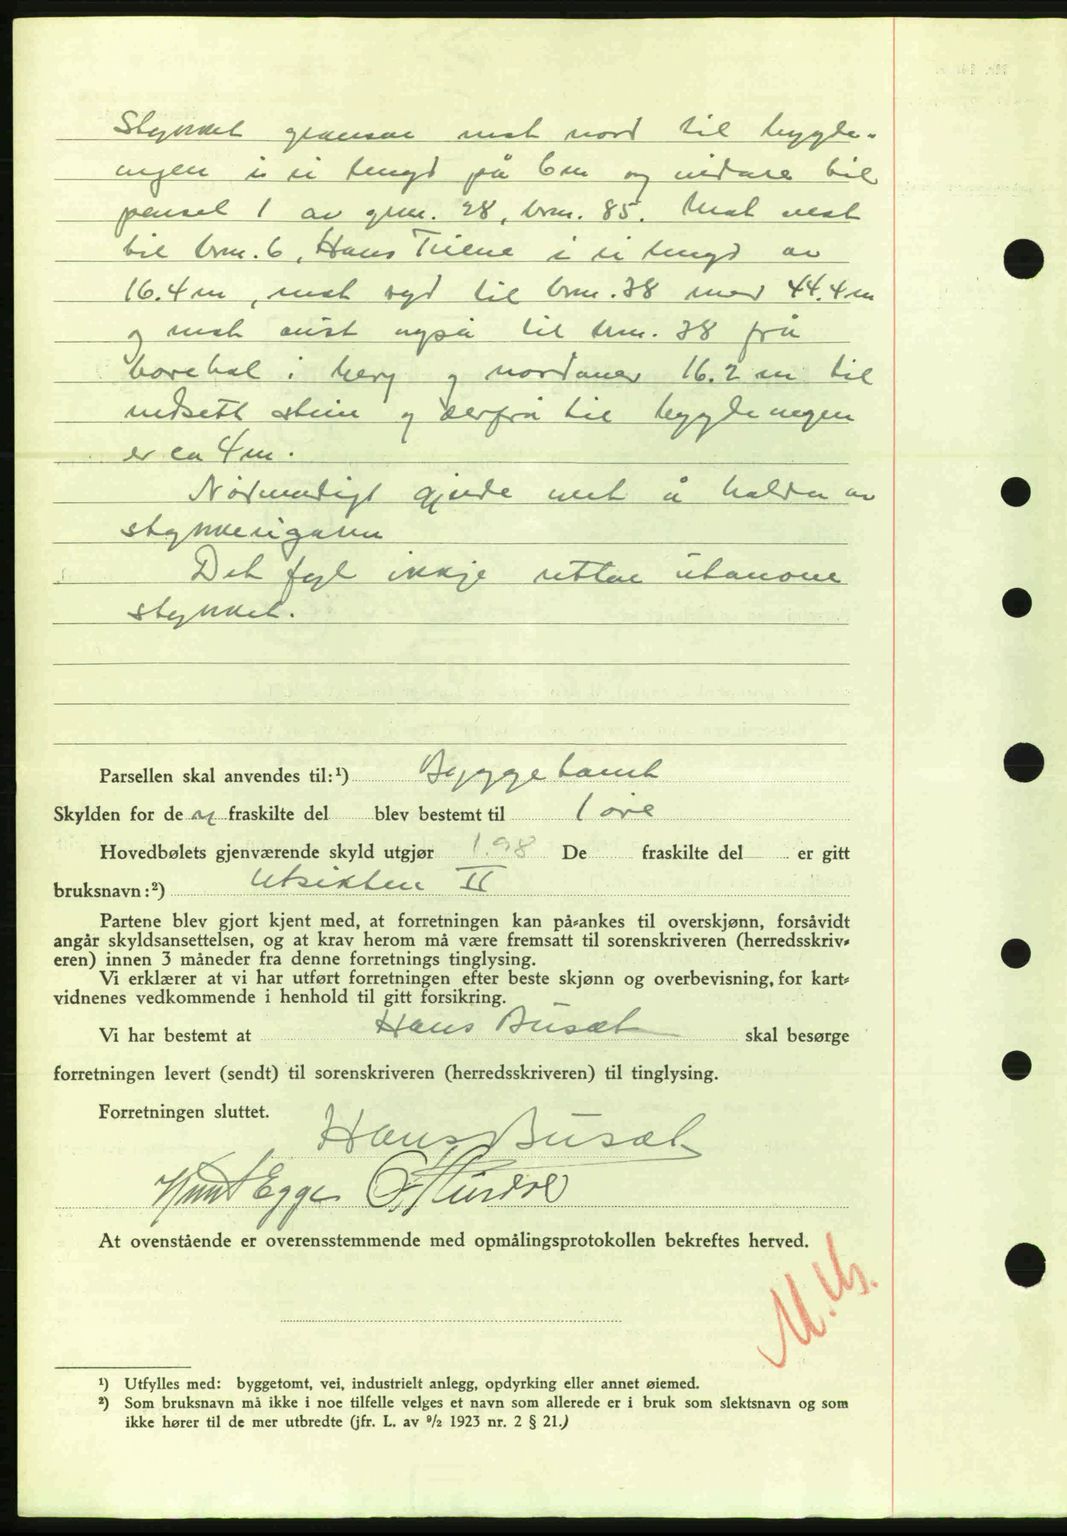 Stykket grensar mot nord til bygde-
vegen i ei lengd på 6m og vidare til
parsel 1 av gnr. 28, brm. 85. Mot vest
til brm. 6, Hans Tiene i ei lengd av
16.4 m, mot syd til brm. 38 med 44.4 m
og mot aust også til brm. 38 frå
borehol i berg og nordover 16.2 m til
nedsett stein og derfrå til bygdevegen
er ca 4 m.
Nødvendigt gjerde vert å halda av
stykkeeigaren
Det fygl ikkje rettar utanom
stykket.
Parsellen skal anvendes til:¹) Byggetomt
Skylden for de n fraskilte del blev bestemt til 1 øre
Hovedbølets gjenværende skyld utgjør 1.98 De fraskilte del er gitt
bruksnavn:²) Utsikten II
Partene blev gjort kjent med, at forretningen kan på-ankes til overskjønn, forsåvidt
angår skyldsansettelsen, og at krav herom må være fremsatt til sorenskriveren (herredsskriv-
eren) innen 3 måneder fra denne forretnings tinglysing.
Vi erklærer at vi har utført forretningen efter beste skjønn og overbevisning, for kart-
vidnenes vedkommende i henhold til gitt forsikring.
Vi har bestemt at Hans Busæt skal besørge
forretningen levert (sendt) til sorenskriveren (herredsskriveren) til tinglysing.
Forretningen sluttet.
Hans Busæt
Knut Egge
At ovenstående er overensstemmende med opmålingsprotokollen bekreftes herved.
¹) Utfylles med: byggetomt, vei, industrielt anlegg, opdyrking eller annet øiemed.
²) Som bruksnavn må ikke i noe tilfelle velges et navn som allerede er i bruk som slektsnavn og som
ikke hører til de mer utbredte (jfr. L. av 9/2 1923 nr. 2 § 21.)